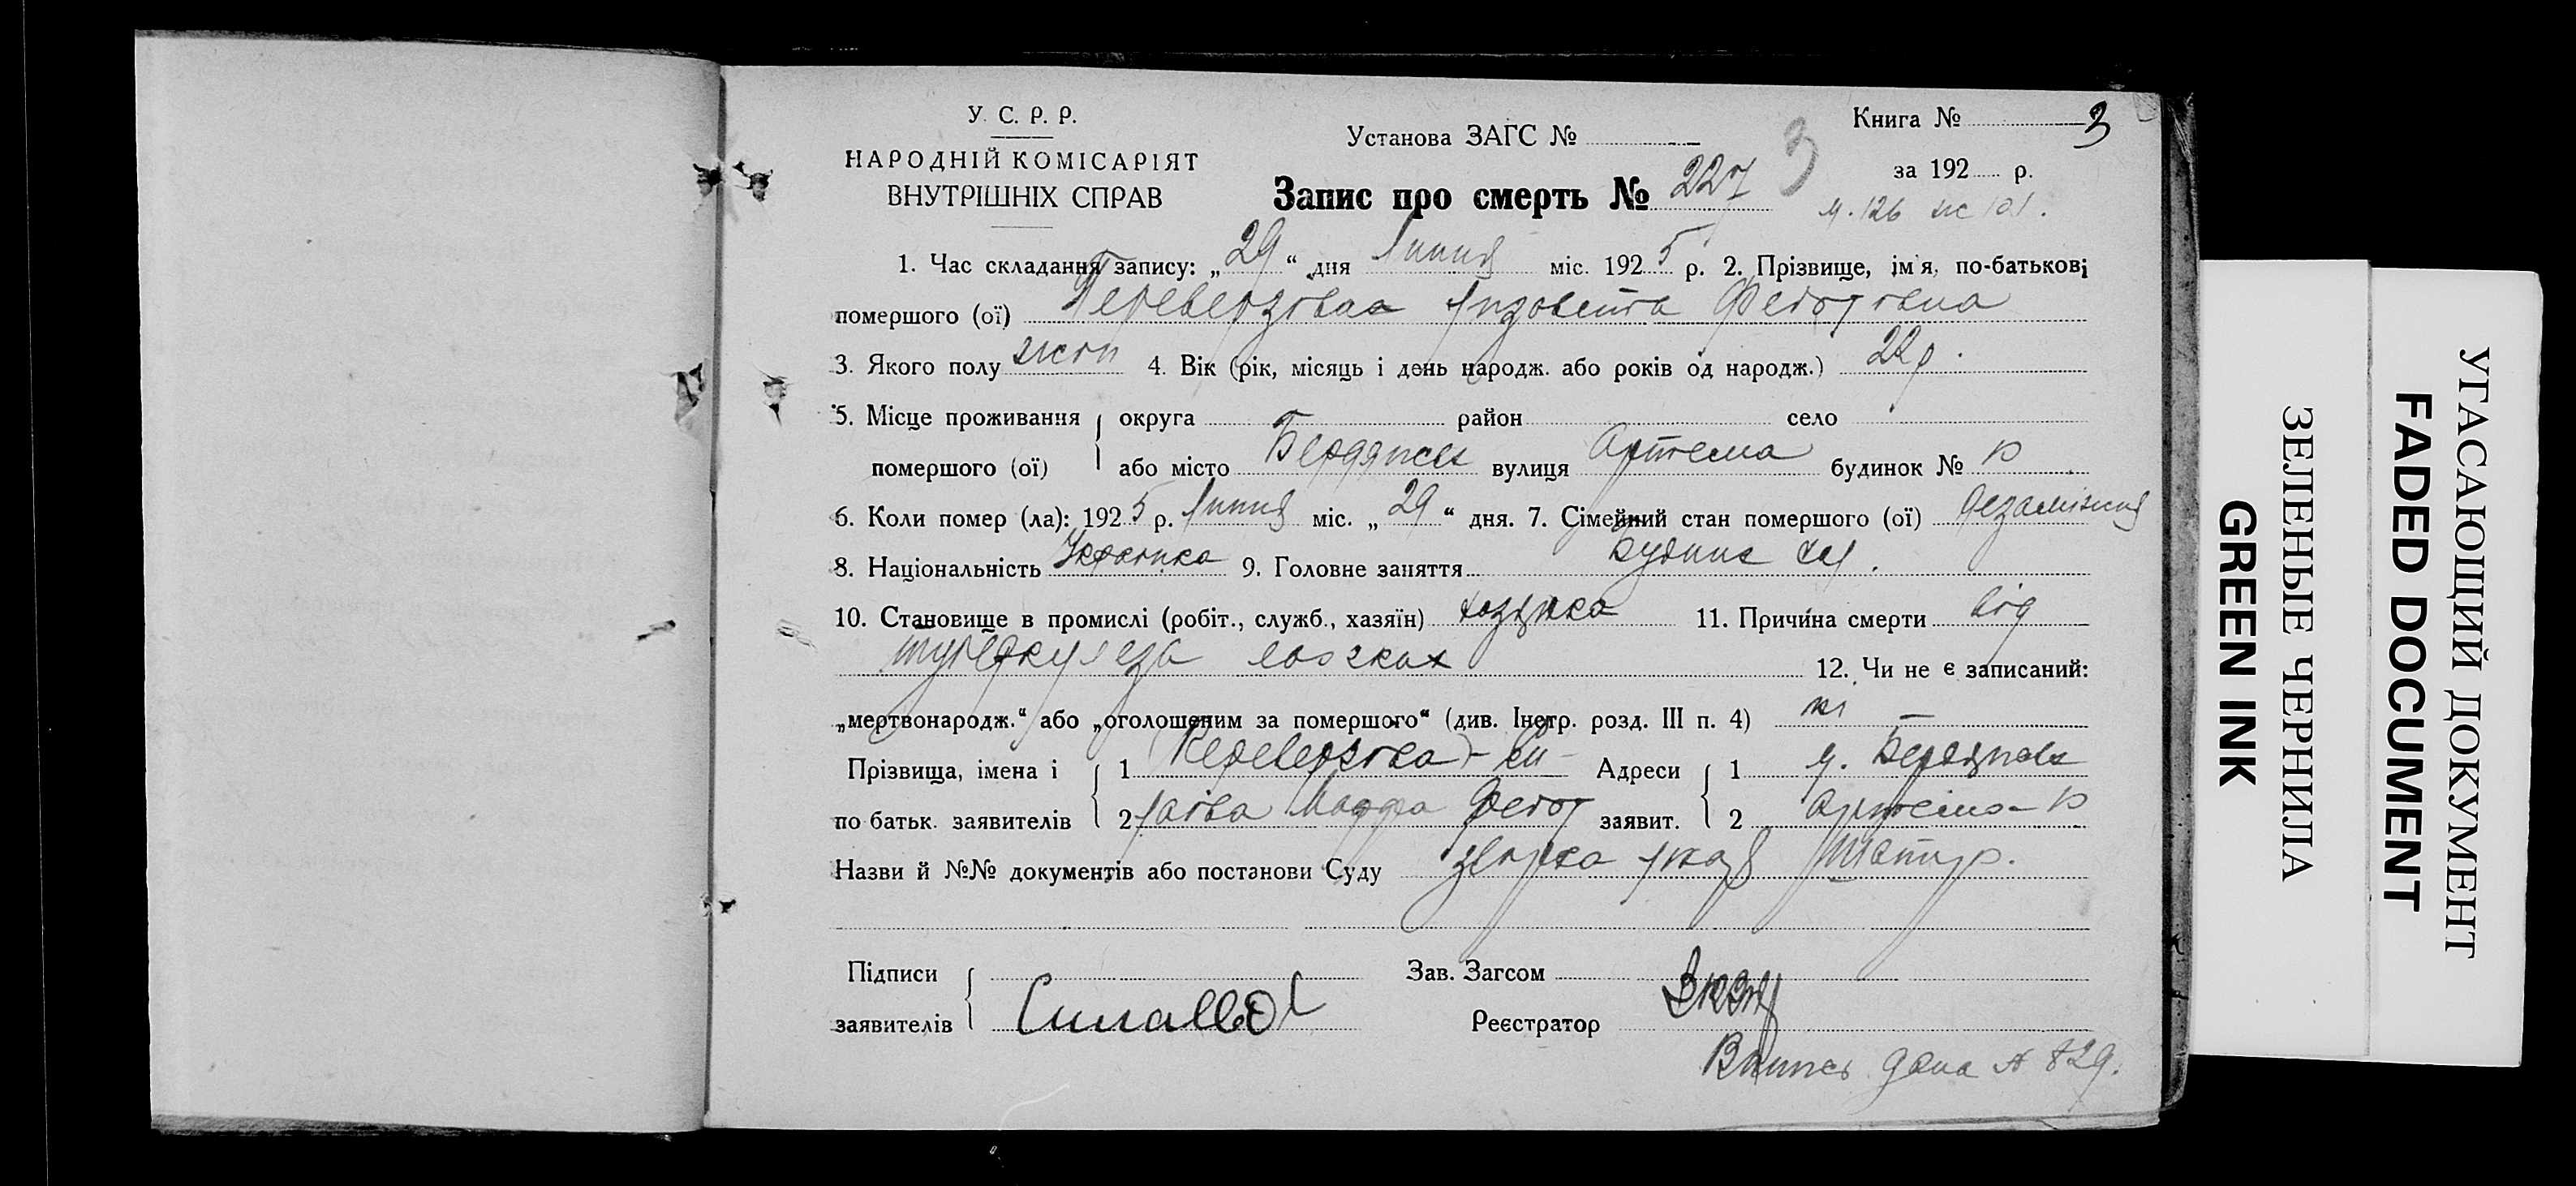 У. С. Р. Р.
НАРОДНІЙ КОМІСАРІЯТ
ВНУТРІШНІХ СПРАВ
Установа ЗАГС №
Книга № 3
за 192 р.
Запис про смерть № 227 3
ч. 126 ж 101.
1. Час складання запису: „29“ дня липня міс. 1925 р. 2. Прізвище, ім'я, по-батькові
помершого (ої) Переверзова Лизовета Федотовна
3. Якого полу жон 4. Вік (рік, місяць і день народж. або років од народж.) 22 р.
5. Місце проживання округа район село
помершого (ої) або місто Бердянськ вулиця Артема будинок №
6. Коли помер (ла): 1925 р. липня міс. „29“ дня. 7. Сімейний стан помершого (ої) незаміжня
8. Національність Українка 9. Головне заняття
10. Становище в промислі (робіт., служб., хазяїн) 11. Причина смерти від
туберкулеза
12. Чи не є записаний:
„мертвонародж.“ або „оголошеним за помершого“ (див. Інстр. розд. III п. 4) ні —
Прізвища, імена і 1 Переверзова Адреси 1 м. Бердянськ
по батьк. заявителів 2 Федот заявит. 2 Артема
Назви й №№ документів або постанови Суду
Підписи
Зав. Загсом
заявителів
Реєстратор
Випись дана № 829.
УГАСАЮЩИЙ ДОКУМЕНТ
FADED DOCUMENT
ЗЕЛЕНЫЕ ЧЕРНИЛА
GREEN INK